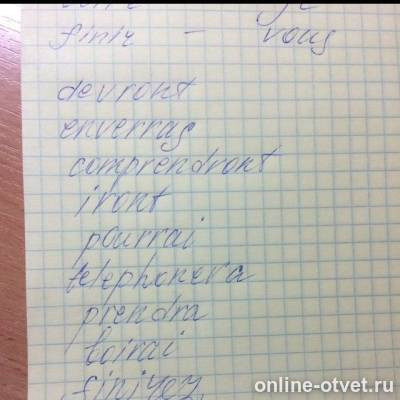 finir - vous
devront
enverras
comprendront
iront
pourrai
telephonera
prendra
boirai
online-otvet.ru